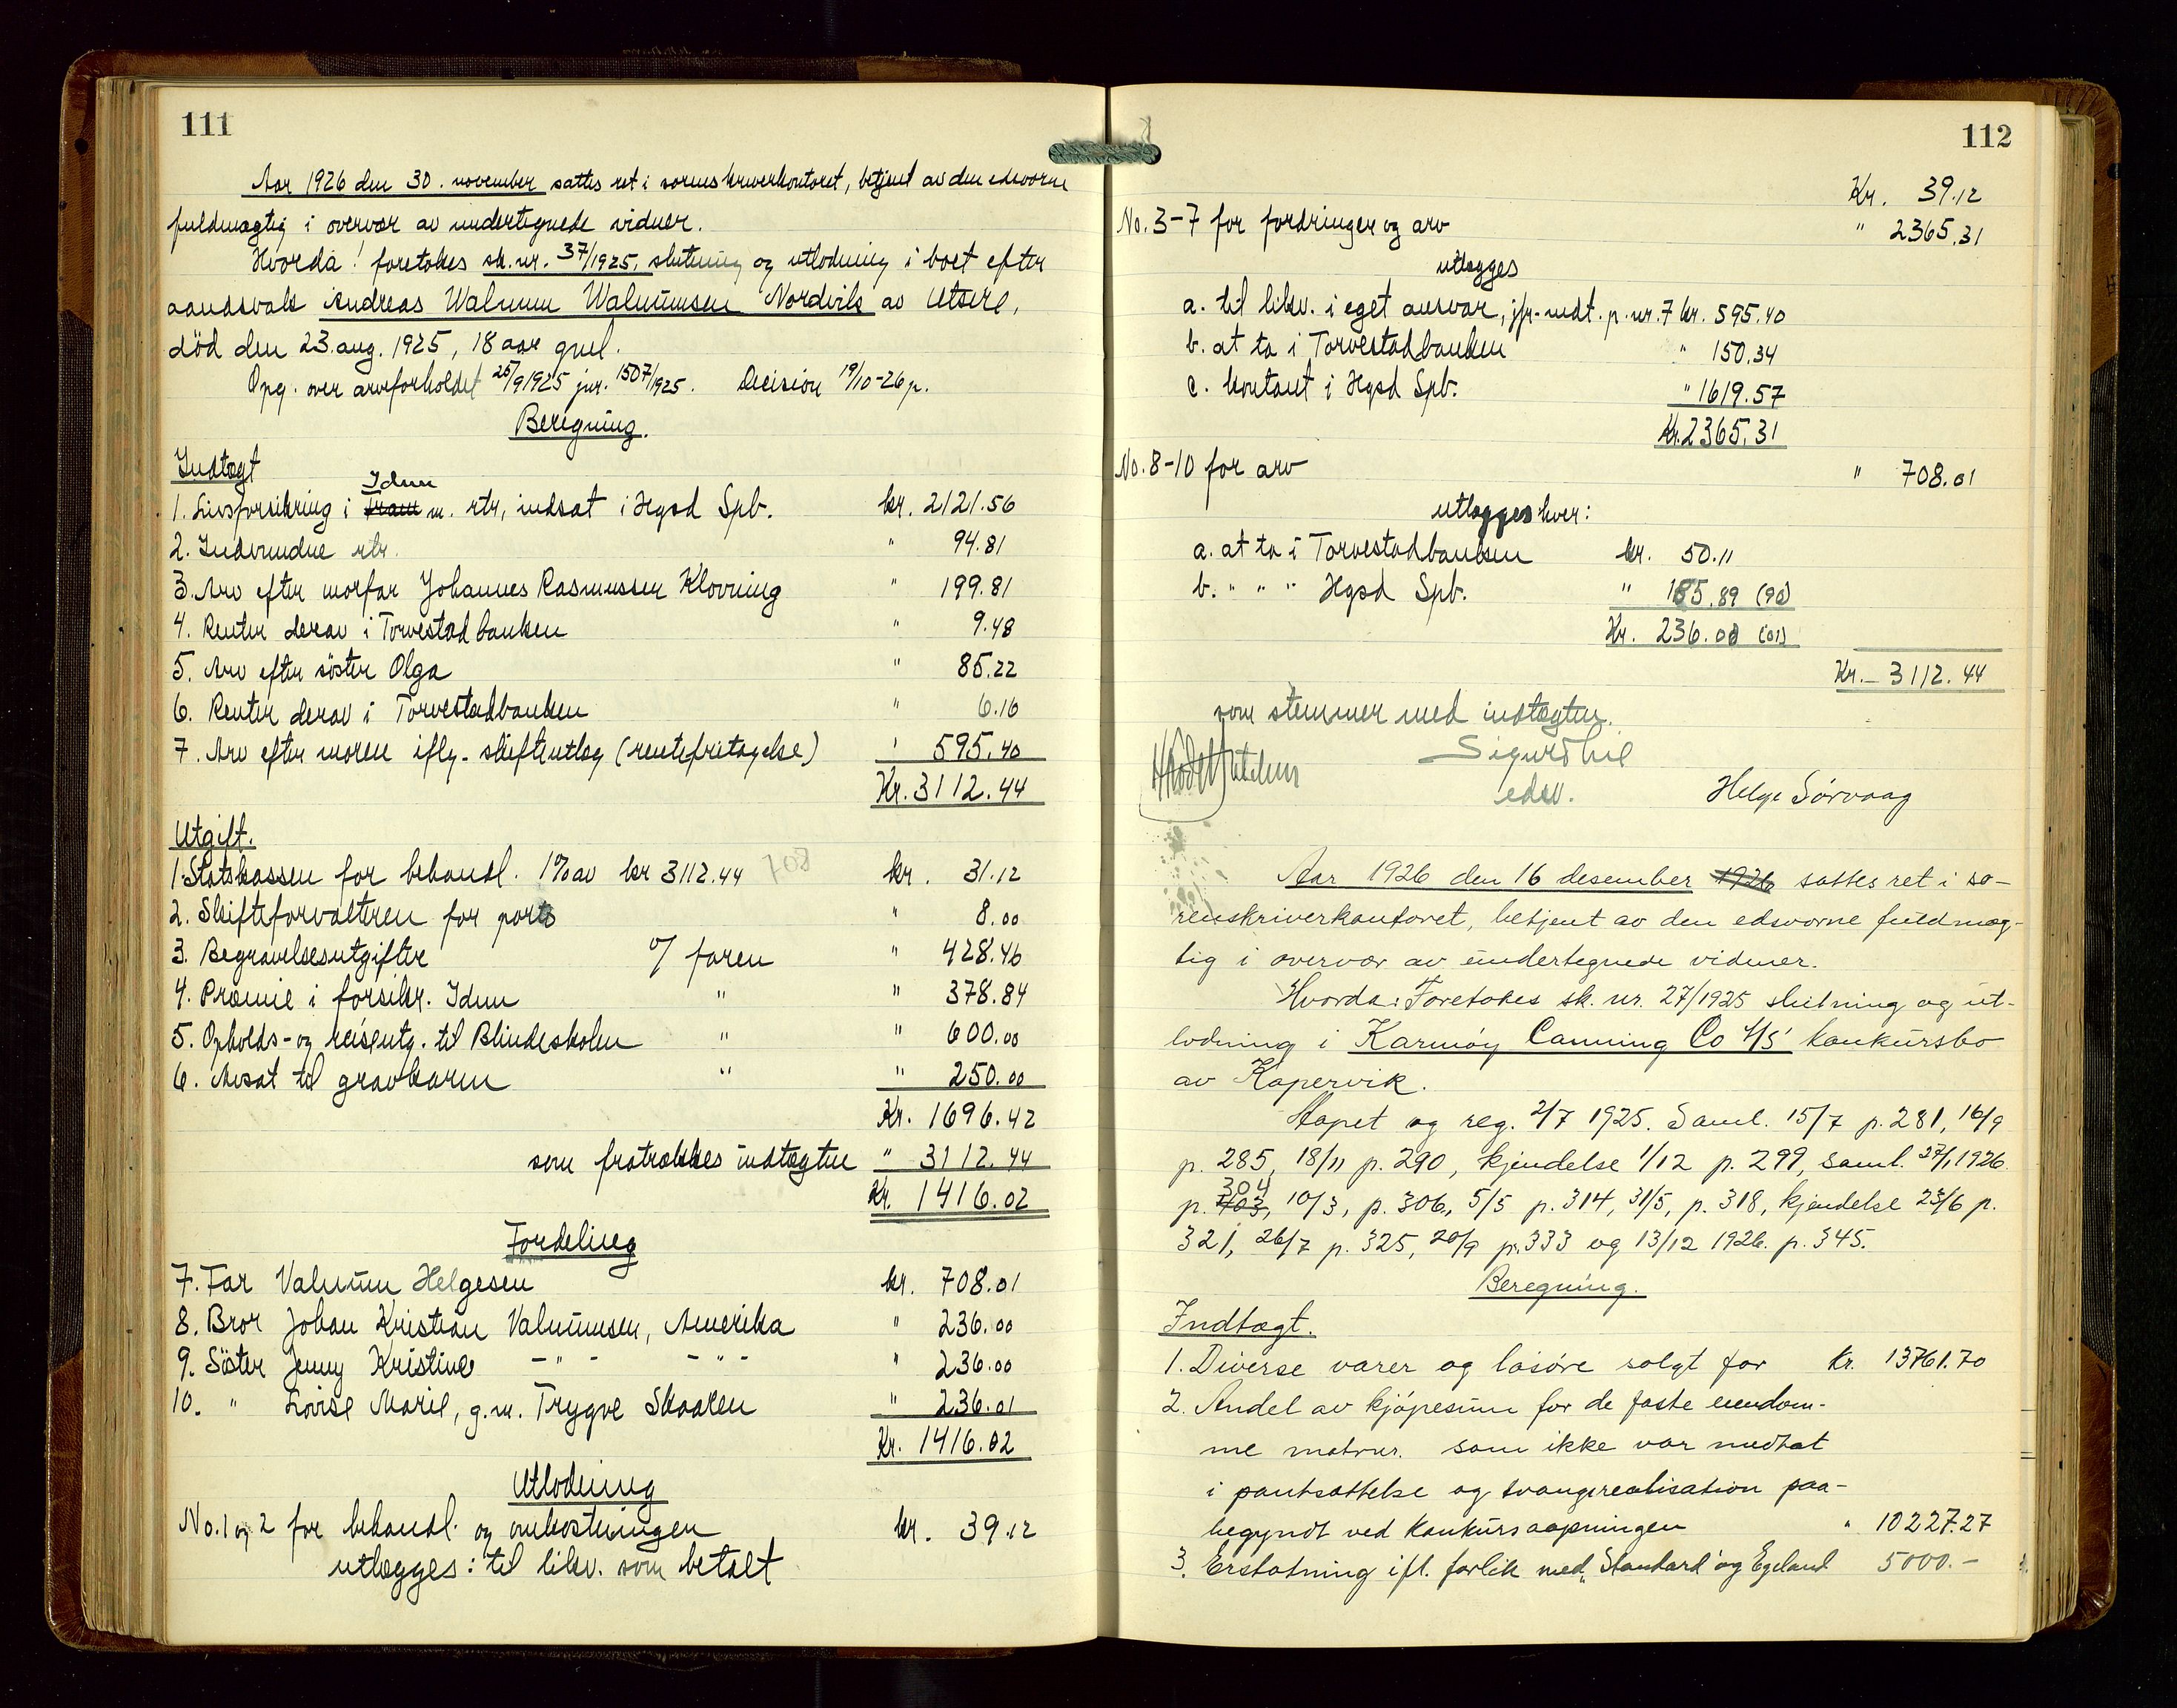 111
Aar 1926 den 30. november sattes ret i sorenskriverkontoret, betjent av den edsvorne
fuldmægtig i overvær av undertegnede vidner.
Hvorda! foretokes sk.nr. 37/1925, slutning og utlodning i boet efter
aandsvak Andreas Walnum Walnumsen Nordvik av Utsire,
död den 23. aug. 1925, 18 aar gml.
Opg. over arveforholdet 25/9 1925 jnr. 1507/1925. Decision 19/10-26 p.
Beregning.
Indtægt
Idun
1. Livsforsikring i Fram m. rtr, indsat i Hgsd Spb. kr. 2121.56
2. Indvundne rtr. " 94.81
3. Arv efter morfar Johannes Rasmussen Klovning " 199.81
4. Renter derav i Torvestadbanken " 9.48
5. Arv efter söster Olga " 85.22
6. Renter derav i Torvestadbanken " 6.16
7. Arv efter moren iflg. skifteutlæg (rentefritagelse) " 595.40
Kr. 3112.44
Utgift.
1. Statskassen for behandl. 1% av kr 3112.44 708 kr. 31.12
2. Skifteforvalteren for porto " 8.00
3. Begravelsesutgifter o/ faren " 428.46
4. Præmie i forsikr. Idun " " 378.84
5. Opholds- og reiseutg. til Blindeskolen " " 600.00
6. Avsat til gravkarm " " 250.00
Kr. 1696.42
som fratrækkes indtægten " 3112.44
Kr. 1416.02
Fordeling
7. Far Valnum Helgesen kr. 708.01
8. Bror Johan Kristian Valnumsen, Amerika " 236.00
9. Söster Jenny Kristine -"- -"- " 236.00
10. " Lovise Marie, g.m. Trygve Skaaren " 236.01
Kr. 1416.02
Utlodning
No. 1 og 2 for behandl. og omkostningen kr. 39.12
utlægges: til likv. som betalt
112
Kr. 39.12
No. 3-7 for fordringer og arv " 2365.31
utlægges
a. til likv. i eget ansvar, jfr. indt. p. nr. 7 kr. 595.40
b. at ta i Torvestadbanken " 150.34
c. kontant i Hgsd Spb. " 1619.57
Kr. 2365.31
No. 8-10 for arv " 708.01
utlægges hver:
a. at ta i Torvestadbanken kr. 50.11
b. " " " Hgsd Spb. " 185.89 (90)
Kr. 236.00 (01)
Kr. 3112.44
som stemmer med indtægten.
Sigurd
edsv.
Helge Sörvaag
Aar 1926 den 16 desember 1926 sattes ret i so-
renskriverkontoret, betjent av den edsvorne fuldmæg-
tig i overvær av undertegnede vidner.
Hvorda: Foretokes sk. nr. 27/1925 slutning og ut-
lodning i Karmöy Canning Co A/S' konkursbo
av Kopervik.
Aapet og reg. 2/7 1925. Saml. 15/7 p. 281, 16/9
p. 285, 18/11 p. 290, kjendelse 1/12 p. 299, saml. 27/1 1926
304
p. 403, 10/3, p. 306, 5/5 p. 314, 31/5, p. 318, kjendelse 23/6 p.
321, 26/7 p. 325, 20/9 p. 333 og 13/12 1926. p. 345.
Beregning.
Indtægt.
1. Diverse varer og lösöre solgt for Kr. 13761.70
2. Andel av kjöpesum for de faste eiendom-
me matrnr. som ikke var medtat
i pantsættelse og tvangsrealisation paa-
begyndt ved konkursaapningen " 10227.27
3. Erstatning ifl. forlik med "Standard" og Egeland 5000.-